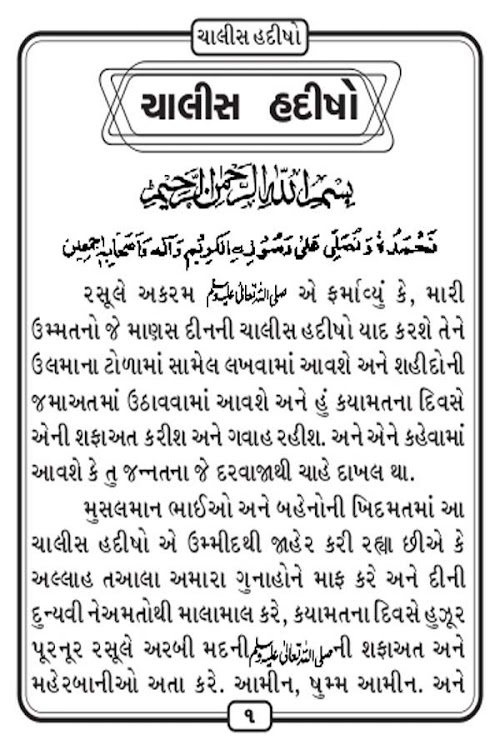 ચાલીસ હદીષો
ચાલીસ હદીષો
بسم الله الرحمن الرحيم
نحمده و نصلی علی رسوله الکریم وآله واصحابه اجمعین
રસૂલે અકરમ صلی الله تعالیٰ علیہ وسلم એ ફર્માવ્યું કે, મારી
ઉમ્મતનો જે માણસ દીનની ચાલીસ હદીષો યાદ કરશે તેને
ઉલમાના ટોળામાં સામેલ લખવામાં આવશે અને શહીદોની
જમાઅતમાં ઉઠાવવામાં આવશે અને હું કયામતના દિવસે
એની શફાઅત કરીશ અને ગવાહ રહીશ. અને એને કહેવામાં
આવશે કે તુ જન્નતના જે દરવાજાથી ચાહે દાખલ થા.
મુસલમાન ભાઈઓ અને બહેનોની ખિદમતમાં આ
ચાલીસ હદીષો એ ઉમ્મીદથી જાહેર કરી રહ્યા છીએ કે
અલ્લાહ તઆલા અમારા ગુનાહોને માફ કરે અને દીની
દુન્યવી નેઅમતોથી માલામાલ કરે, કયામતના દિવસે હુઝૂર
પૂરનૂર રસૂલે અરબી મદની صلی الله تعالیٰ علیہ وسلم ની શફાઅત અને
મહેરબાનીઓ અતા કરે. આમીન, ષુમ્મ આમીન. અને
૧